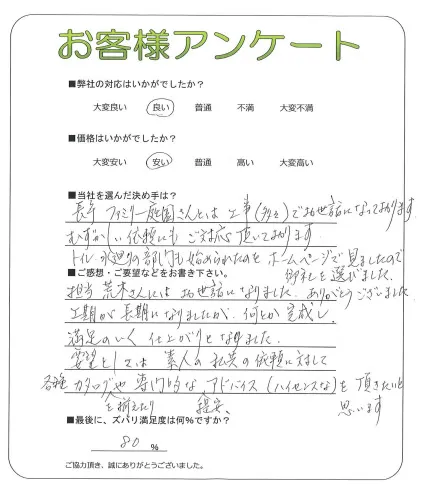 お客様アンケート
■弊社の対応はいかがでしたか？
大変良い 良い 普通 不満 大変不満
■価格はいかがでしたか？
大変安い 安い 普通 高い 大変高い
■当社を選んだ決め手は？
長年 ファミリー庭園さんとは 工事(多々)でお世話になっております
むずかしい依頼にも ご対応頂いております
トイレ 水廻りの部門も始められたのを ホームページで見ましたので
御社を選びました。
■ご感想・ご要望などをお書き下さい。
担当 荒木さんには お世話になりました。ありがとうございました
工期が長期になりましたが、何とか完成し、
満足のいく 仕上がりとなりました。
要望としては 素人の私共の依頼に対して
各種 カタログや 専門的な アドバイス(ハイセンスな)を 頂きたいと
を揃えたり 提案、 思います
■最後に、ズバリ満足度は何％ですか？
80 ％
ご協力頂き、誠にありがとうございました。